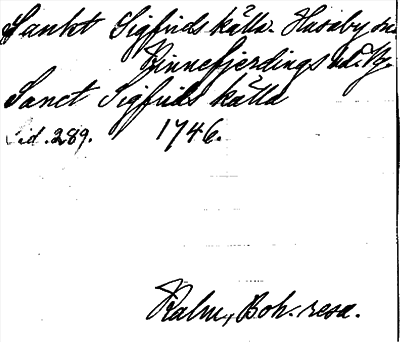 Sankt Sigfrids källa. Husaby sn.
Kinnefjerdings hd. Vg.
Sanct Sigfrids källa
Sid. 289. 1746.
Kalm, Boh. resa.